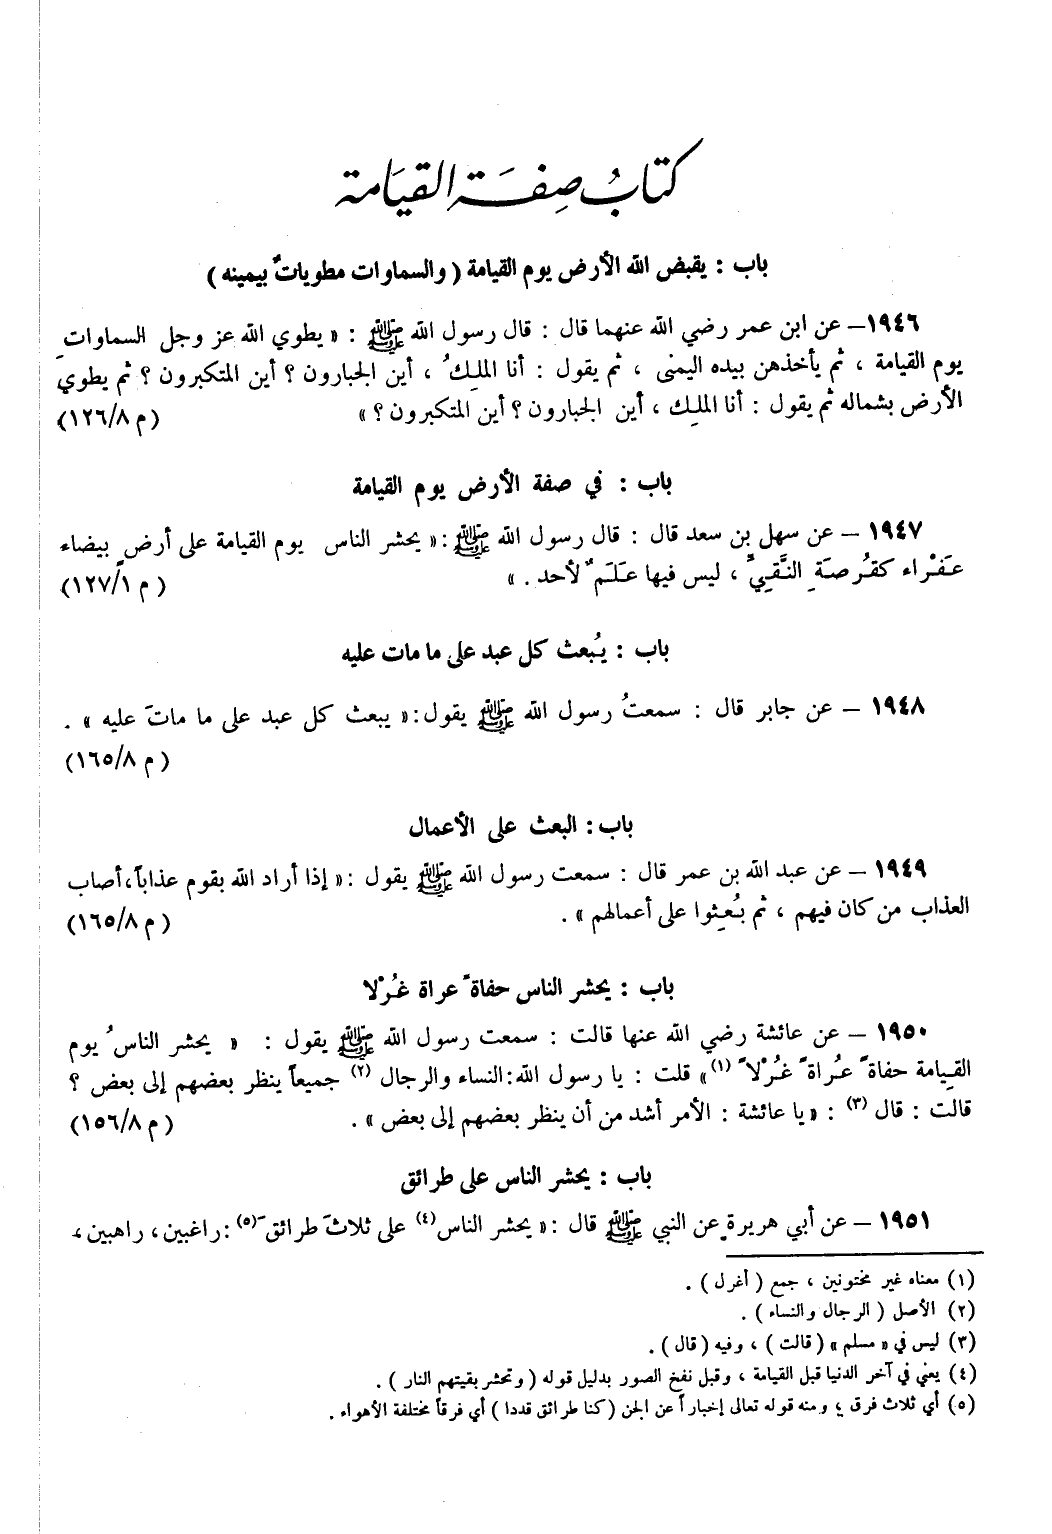 كتابُ صِفَة القيَامة
باب : يقبض الله الأرض يوم القيامة ( والسماوات مطوياتٌ بيمينه )
١٩٤٦ – عن ابن عمر رضي الله عنهما قال : قال رسول الله ﷺ : « يطوي الله عز وجل السماواتِ
يوم القيامة ، ثم يأخذهن بيده اليمنى ، ثم يقول : أنا الملِكُ ، أين الجبارون ؟ أين المتكبرون ؟ ثم يطوي
الأرض بشماله ثم يقول : أنا الملِك ، أين الجبارون ؟ أين المتكبرون ؟ » ( م ١٢٦/٨)
باب : في صفة الأرض يوم القيامة
١٩٤٧ – عن سهل بن سعد قال : قال رسول الله ﷺ :« يحشر الناس يوم القيامة على أرضٍ بيضاء
عَفْراء كقُرصَةِ النَّقِيِّ ، ليس فيها عَلَمٌ لأحد . » ( م ١٢٧/١)
باب : يُبعث كل عبد على ما مات عليه
١٩٤٨ – عن جابر قال : سمعتُ رسول الله ﷺ يقول:« يبعث كل عبد على ما ماتَ عليه » .
( م ١٦٥/٨)
باب : البعث على الأعمال
١٩٤٩ – عن عبد الله بن عمر قال : سمعت رسول الله ﷺ يقول :« إذا أراد الله بقوم عذاباً،أصاب
العذاب من كان فيهم ، ثم بُعِثوا على أعمالهم » . ( م ١٦٥/٨)
باب : يحشر الناس حفاةً عراة غُرْلا
١٩٥٠ – عن عائشة رضي الله عنها قالت : سمعت رسول الله ﷺ يقول : « يحشر الناسُ يوم
القِيامة حفاةً عُراةً غُرْلاً (١)» قلت : يا رسول الله:النساء والرجال (٢) جميعاً ينظر بعضهم إلى بعض ؟
قالت : قال (٣) : « يا عائشة : الأمر أشد من أن ينظر بعضهم إلى بعض » . ( م ١٥٦/٨)
باب : يحشر الناس على طرائق
١٩٥١ – عن أبي هريرة عن النبي ﷺ قال :« يحشر الناس(٤) على ثلاثَ طرائقَ(٥) :راغبين، راهبين،
(١) معناه غير مختونين ، جمع ( أغرل ) .
(٢) الأصل ( الرجال والنساء ) .
(٣) ليس في « مسلم » ( قالت ) ، وفيه ( قال ) .
(٤) يعني في آخر الدنيا قبل القيامة ، وقبل نفخ الصور بدليل قوله ( وتحشر بقيتهم النار ) .
(٥) أي ثلاث فرق ، ومنه قوله تعالى إخباراً عن الجن ( كنا طرائق قددا ) أي فرقاً مختلفة الأهواء .